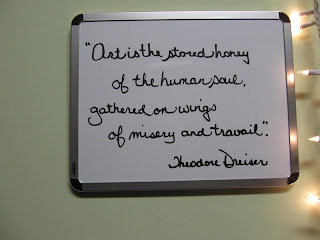 "Art is the stored honey
of the human soul,
gathered on wings
of misery and travail".
Theodore Dreiser